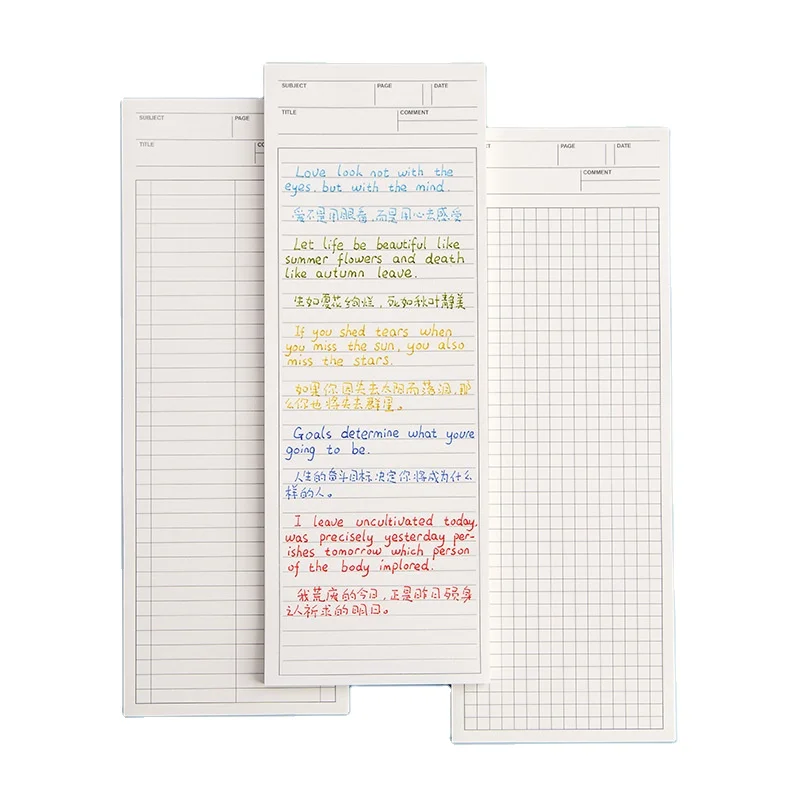 SUBJECT PAGE
TITLE CO
SUBJECT PAGE DATE
TITLE COMMENT
Love look not with the
eyes, but with the mind.
爱不是用眼看,而是用心去感受
Let life be beautiful like
summer flowers and death
like autumn leave.
生如夏花绚烂,死如秋叶静美
If you shed tears when
you miss the sun, you also
miss the stars.
如果你因失去太阳而落泪,那
么你也将失去群星。
Goals determine what youre
going to be.
人生的奋斗目标决定你将成为什么
样的人。
I leave uncultivated today,
was precisely yesterday per-
ishes tomorrow which person
of the body implored.
我荒废的今日,正是昨日殒身
之人祈求的明日。
PAGE DATE
COMMENT